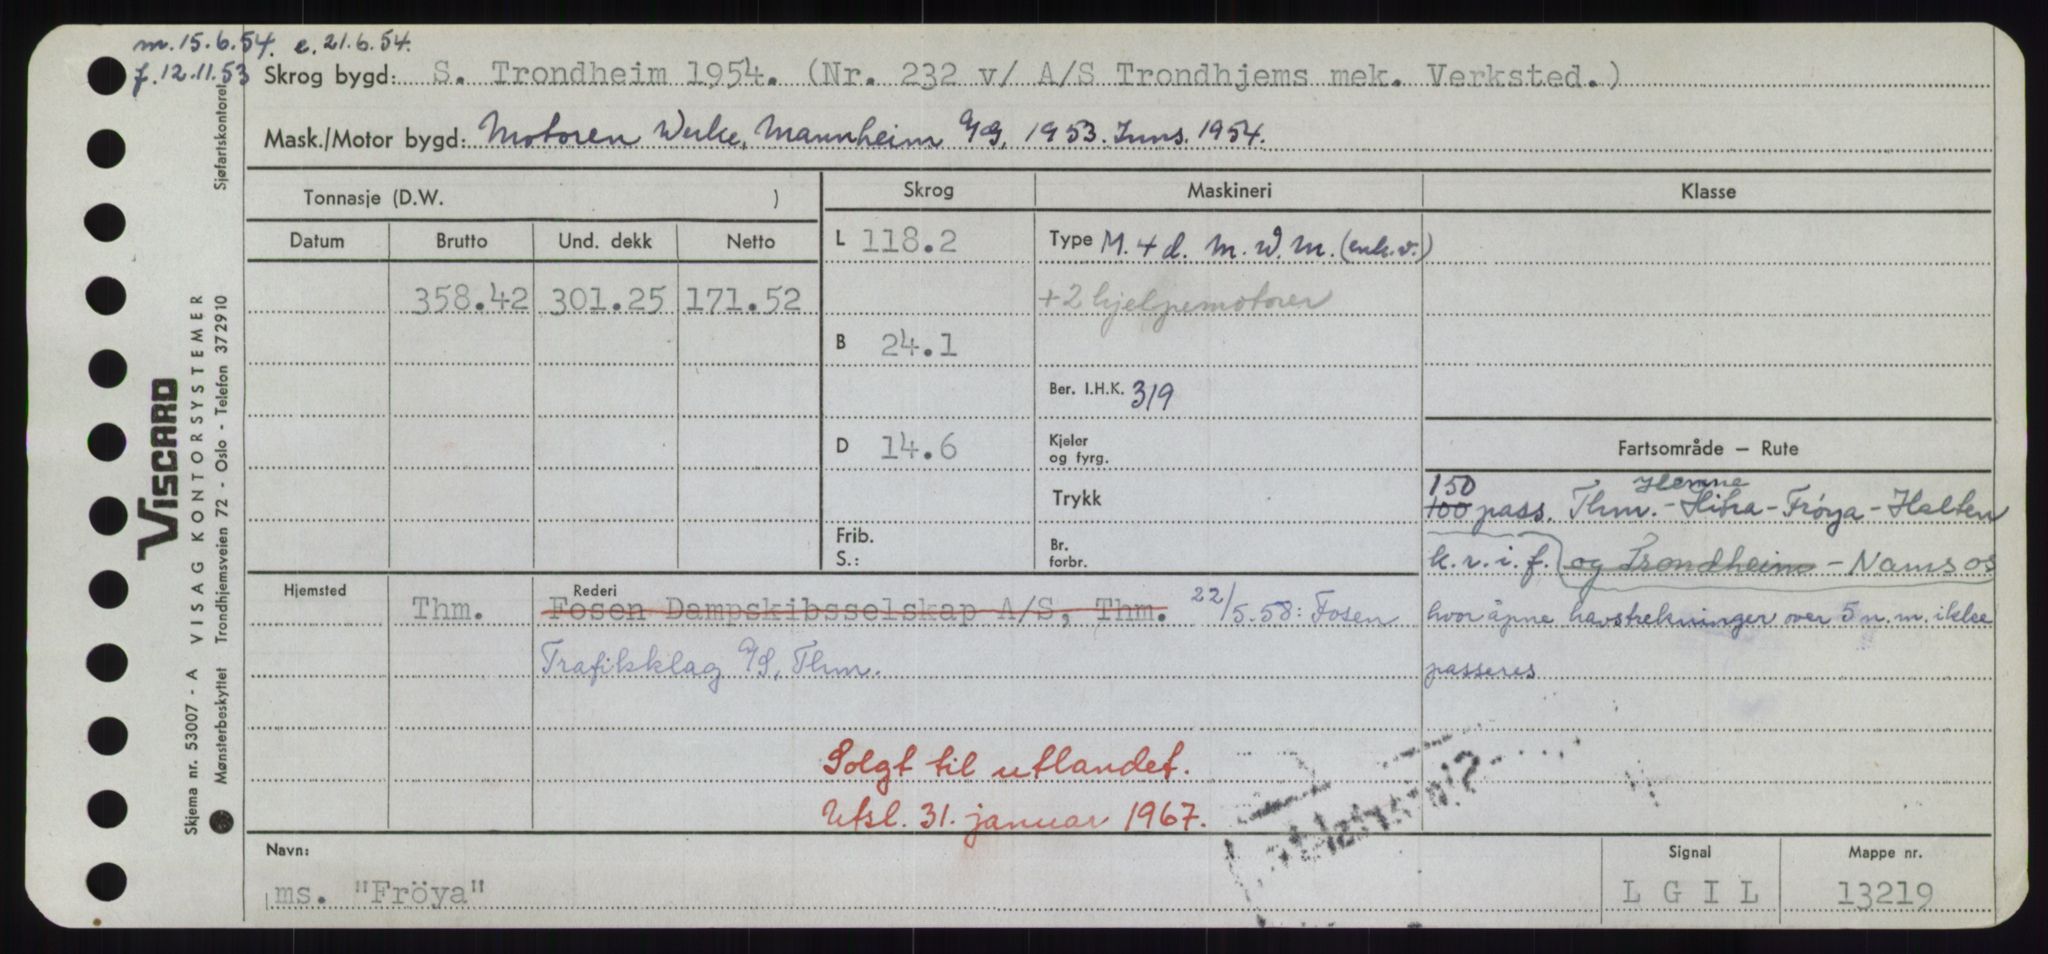 m. 15.6.54. e. 21.6.54.
f. 12.11.53 Skrog bygd: S. Trondheim 1954. (Nr. 232 v/ A/S Trondhjems mek. Verksted.)
Mask./Motor bygd: Motoren Werke, Mannheim A/G, 1953. Inns. 1954.
Tonnasje (D.W. ) Skrog Maskineri Klasse
Datum Brutto Und. dekk Netto L 118.2 Type M. 4 d. M.W.M. (enk.v.)
358.42 301.25 171.52 +2 hjelpemotorer
B 24.1
Ber. I.H.K. 319
D 14.6 Kjeler og fyrg. Fartsområde — Rute
Trykk 150 Hemne
100 pass. Thm. - Hitra - Frøya - Halten
Frib. S.: Br. forbr. k.r.i.f. og Trondheim - Namsos
Hjemsted Thm. Rederi Fosen Dampskibsselskap A/S, Thm. 22/5.58: Fosen hvor åpne havstrekninger over 5 n.m. ikke
Trafikklag A/S, Thm. passeres
Solgt til utlandet.
Utsl. 31. januar 1967.
Navn: Signal Mappe nr.
ms. "Fröya" L G I L 13219
Sjøfartskontoret
VISCARD
VISAG KONTORSYSTEMER
Trondhjemsveien 72 - Oslo - Telefon 372910
Skjema nr. 53007 - A
Mønsterbeskyttet